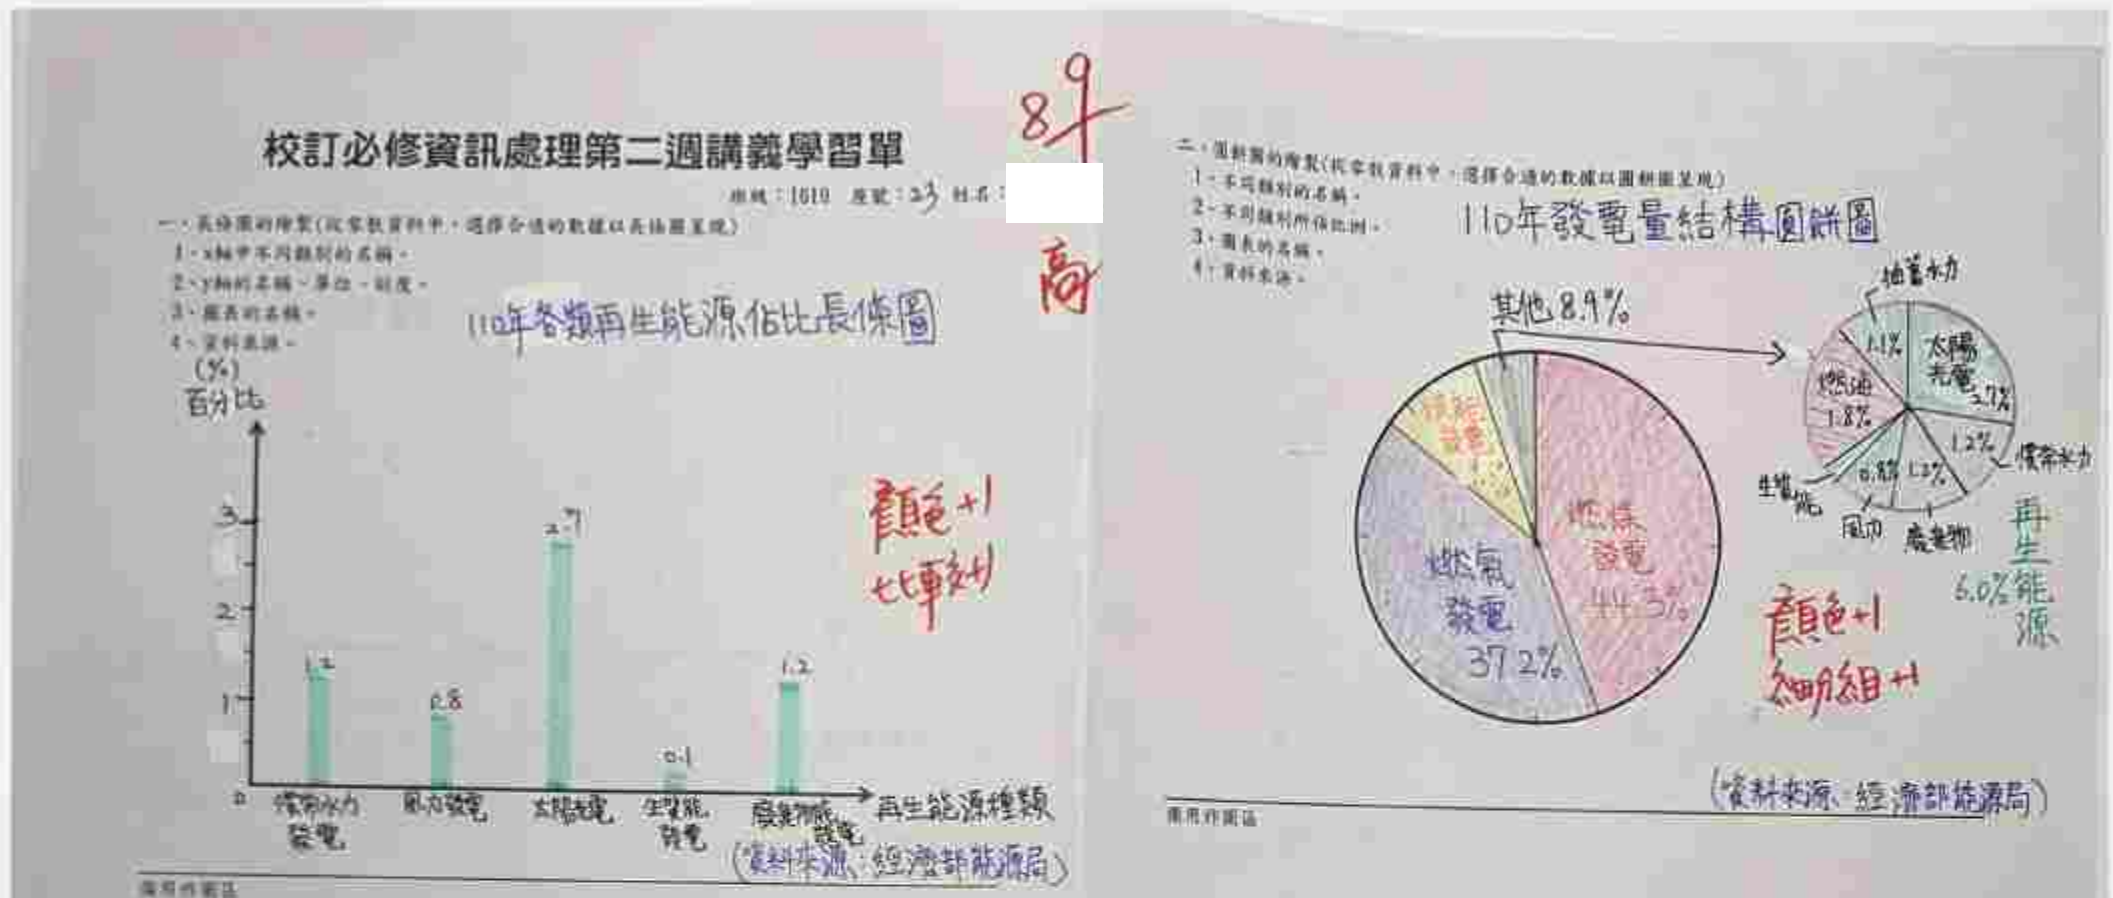 校訂必修資訊處理第二週講義學習單
8
9
班級：1619 座號：23 姓名：
一、長條圖的繪製(從零散資料中，選擇合適的數據以長條圖呈現)
1、x軸中不同類別的名稱。
2、y軸的名稱、單位、刻度。
3、圖表的名稱。
4、資料來源。
高
110年各類再生能源佔比長條圖
(%)
百分比
3
2
1
0
1.2
0.8
2.7
0.1
1.2
慣常水力
發電
風力發電
太陽光電
生質能
發電
廢棄物能
發電
再生能源種類
顏色+1
比較+1
(資料來源：經濟部能源局)
備用作圖區
二、圓餅圖的繪製(從零散資料中，選擇合適的數據以圓餅圖呈現)
1、不同類別的名稱。
2、不同類別所佔比例。
3、圖表的名稱。
4、資料來源。
110年發電量結構圓餅圖
其他8.9%
核能
發電
燃煤
發電
44.3%
燃氣
發電
37.2%
抽蓄水力
1.1%
太陽
光電
2.7%
燃油
1.8%
1.2%
慣常水力
生質
能
0.8%
風力
1.2%
廢棄物
再生能源
6.0%
顏色+1
細明細+1
(資料來源：經濟部能源局)
備用作圖區